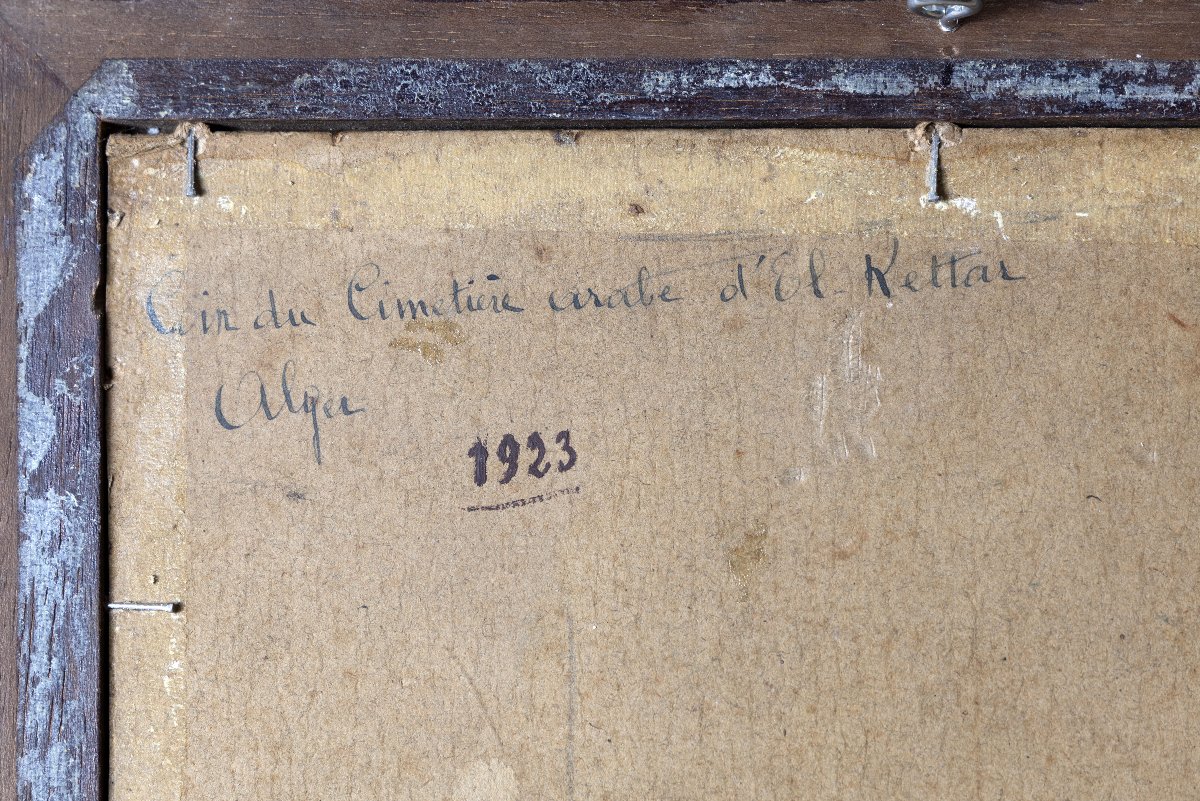 Coin du Cimetière arabe d'El-Kettar
Alger
1923